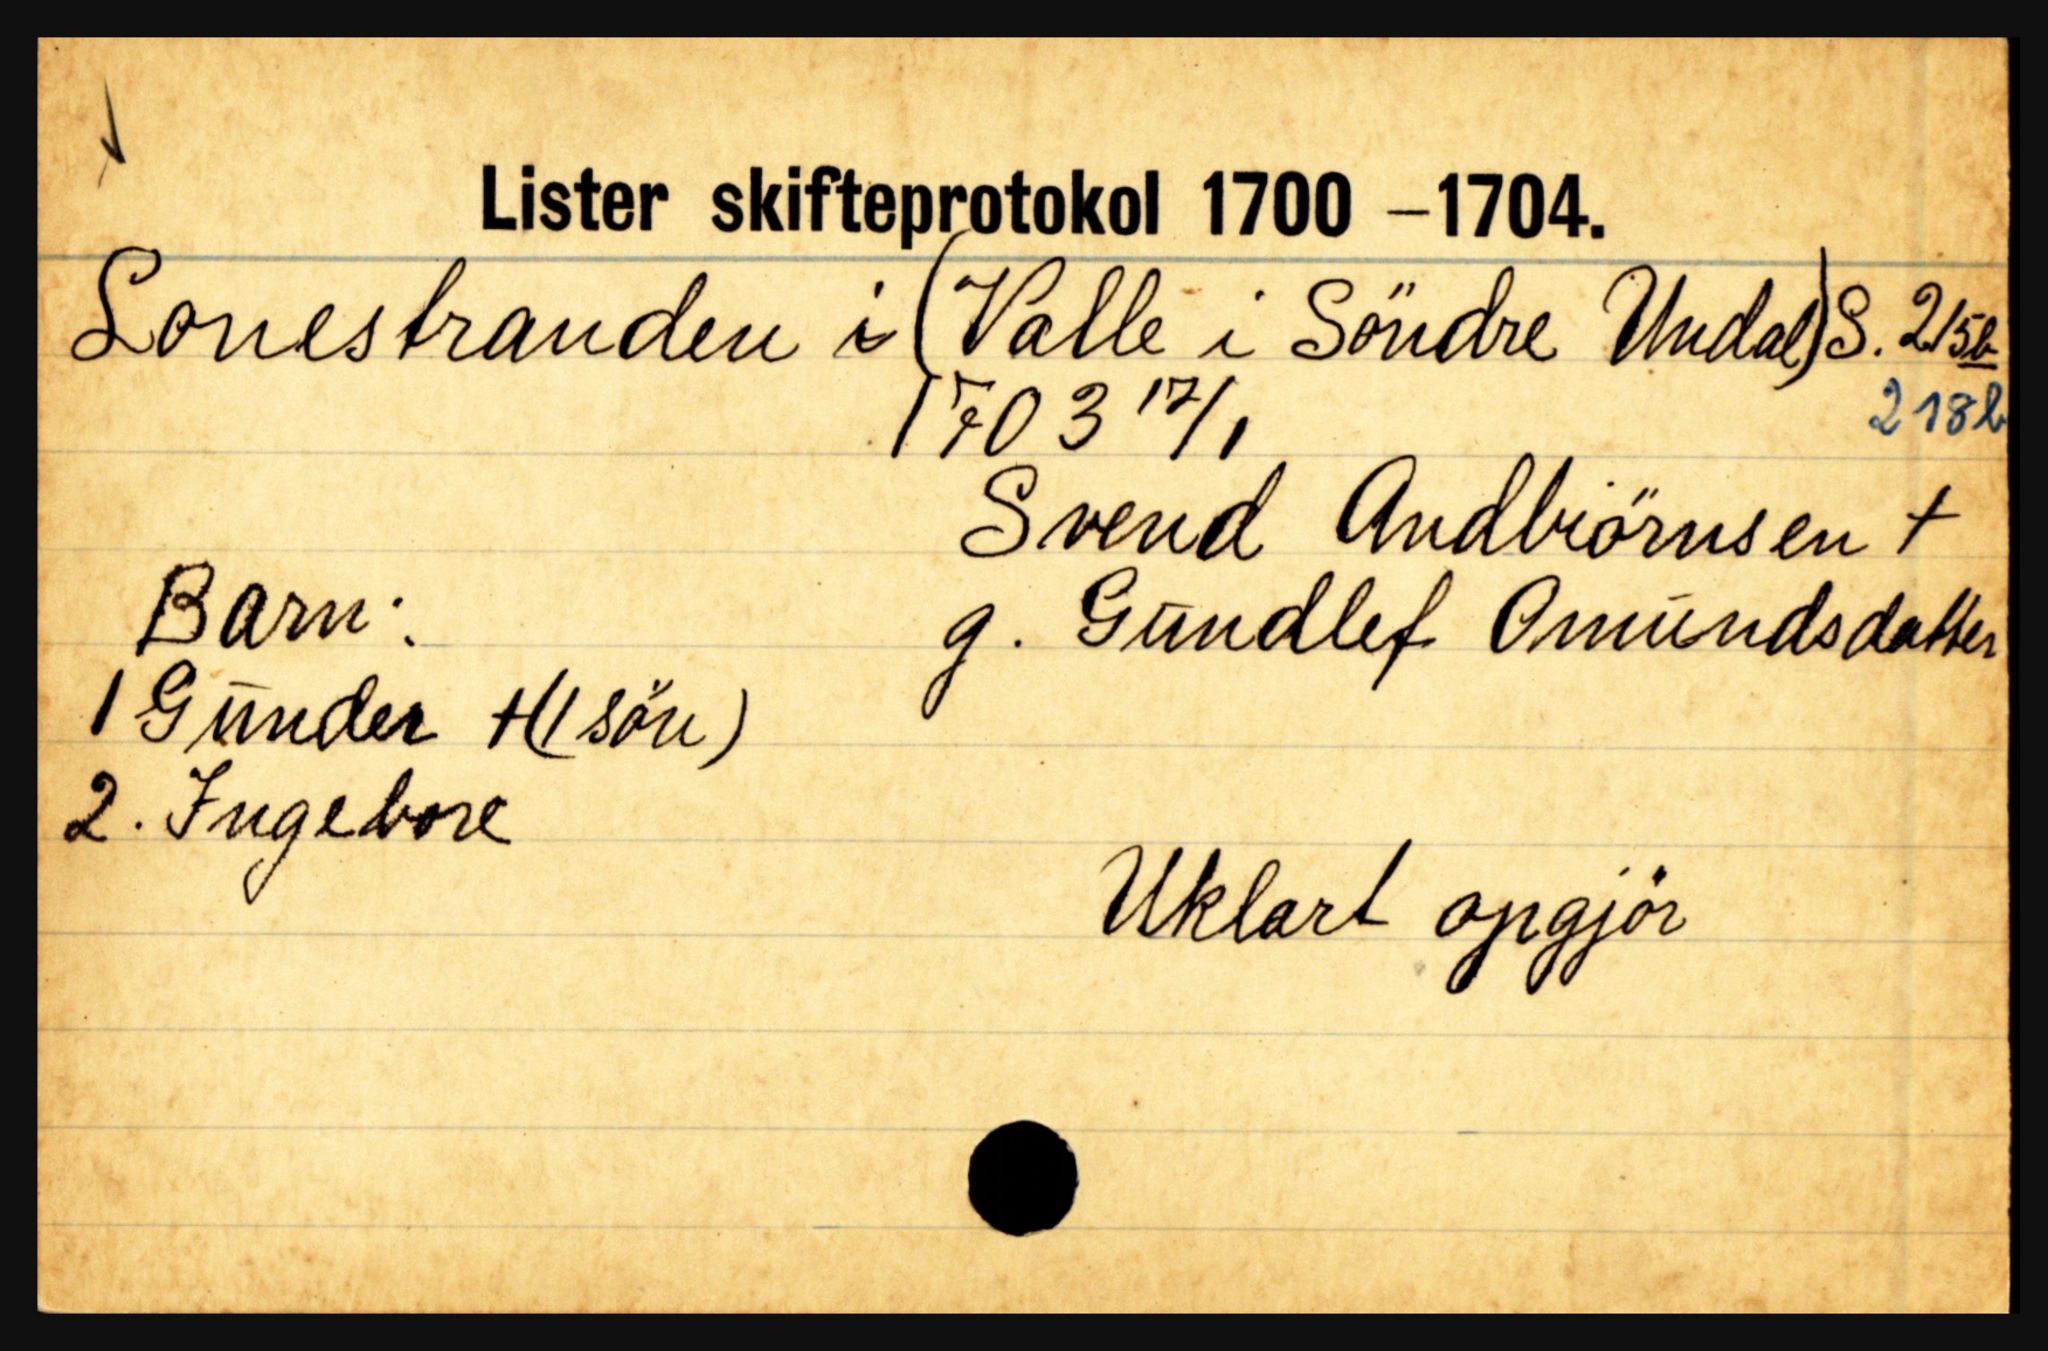 Lister skifteprotokol 1700 – 1704.
Lonestranden i (Valle i Söndre Undal) S. 215b
1703 17/1 218b
Svend Andbiörnsen +
Barn: g. Gundlef Omundsdatter
1 Gunder + (1 sön)
2. Ingebore
Uklart opgjör